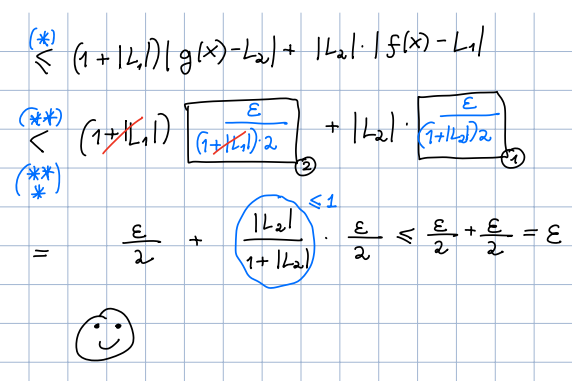 (*) ≤ (1+|L₁|)|g(x)-L₂|+ |L₂|·|f(x)-L₁|
(**) < (***) (1+|L₁|) ε/((1+|L₁|)·2) ② + |L₂|· ε/((1+|L₂|)2) ①
= ε/2 + |L₂|/(1+|L₂|) ≤1 · ε/2 ≤ ε/2 + ε/2 = ε